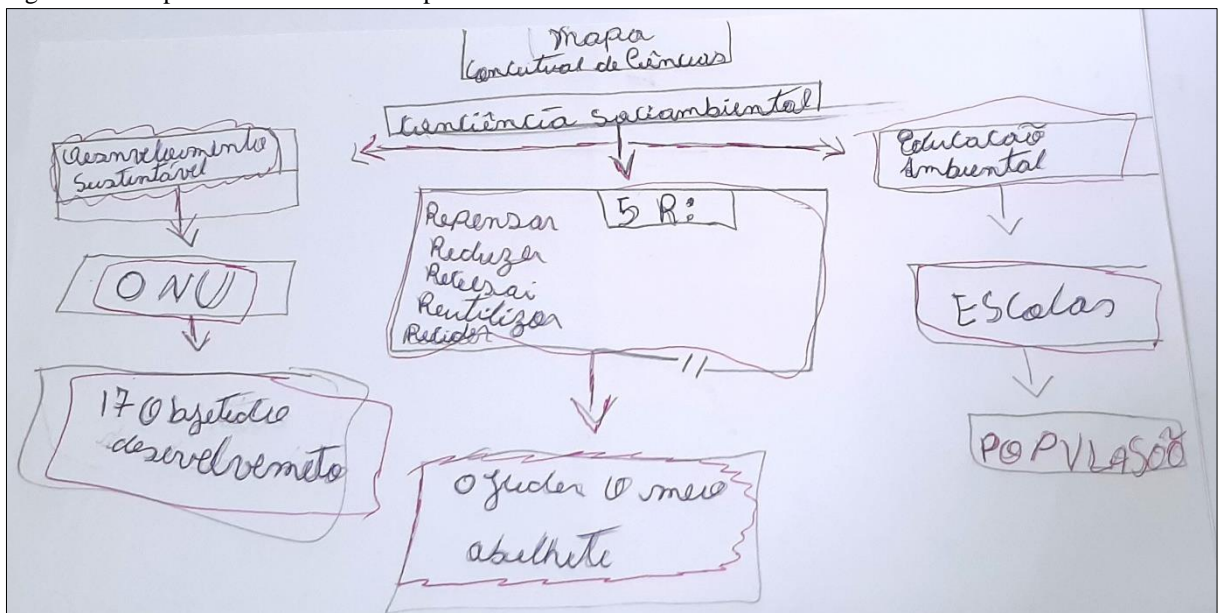 Mapa
Conceitual de Ciências
Conciência Sociambiental
Desenvolvimento
Sustentável
ONU
17 Objetidio
desenvelvemeto
5 R:
Repensar
Reduzer
Recusai
Reutilizar
O meio
Educacaõ
Ambiental
EScolas
POPULASOÕ